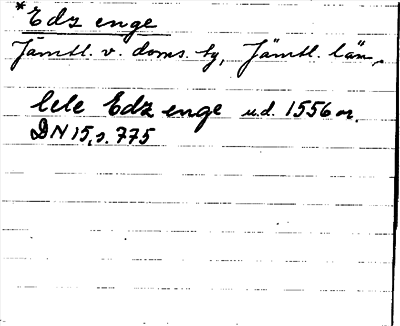 *Edz enge
Jämtl. v. doms. by, Jämtl. län.
lele Edz enge u.d. 1556 or.
DN 15, s. 775